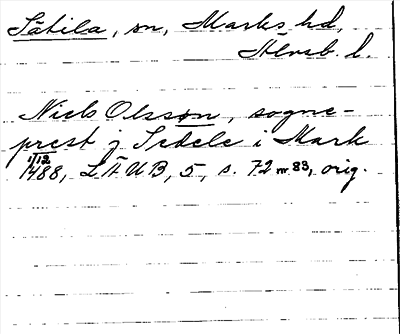 Sätila, sn, Marks hd,
Älvsb. l.
Niels Olsson, sogne-
prest j Sedele i Mark
1/12
1488, LÄUB, 5, s. 72 nr 83, orig.